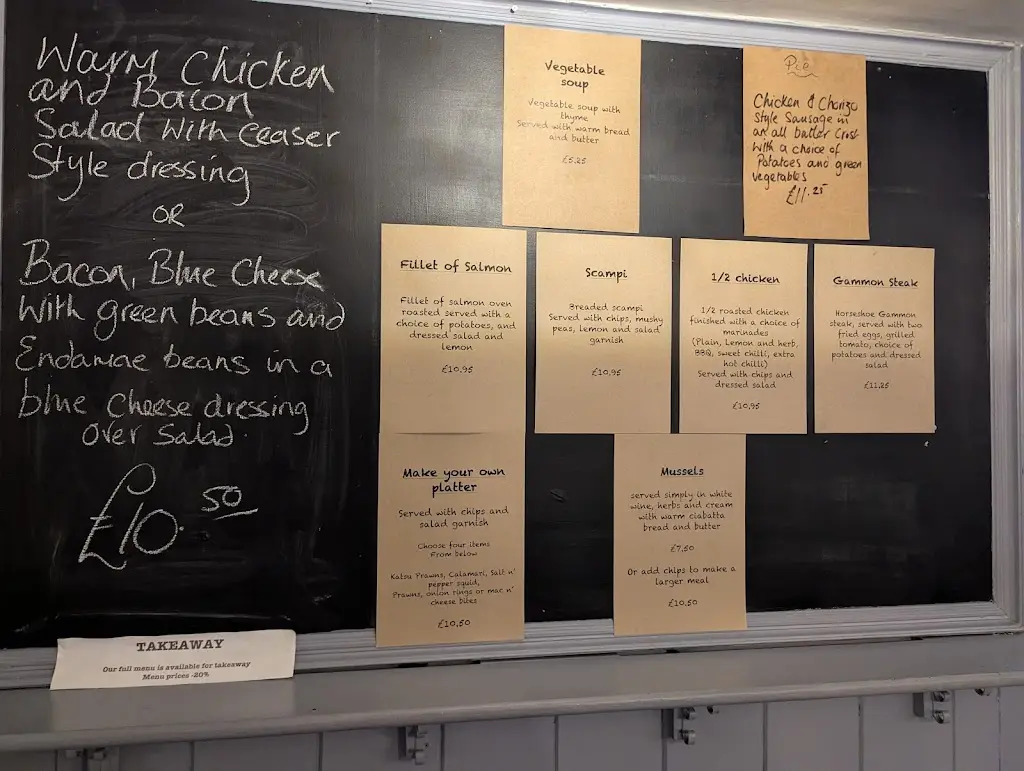 Warm Chicken
and Bacon
Salad with Ceaser
Style dressing
OR
Bacon, Blue Cheese
with green beans and
Endamae beans in a
blue Cheese dressing
Over Salad.
£10.50
TAKEAWAY
Our full menu is available for takeaway
Menu prices -20%
Vegetable
soup
Vegetable soup with
thyme
Served with warm bread
and butter
£5.25
Pie
Chicken & Chorizo
Style Sausage in
an all butter Crust
with a choice of
Potatoes and green
vegetables
£11.25
Fillet of Salmon
Fillet of salmon oven
roasted served with a
choice of potatoes, and
dressed salad and
lemon
£10.95
Scampi
Breaded scampi
Served with chips, mushy
peas, lemon and salad
garnish
£10.95
1/2 chicken
1/2 roasted chicken
finished with a choice of
marinades
(Plain, Lemon and herb,
BBQ, sweet chilli, extra
hot chilli)
Served with chips and
dressed salad
£10.95
Gammon Steak
Horseshoe Gammon
steak, served with two
fried eggs, grilled
tomato, choice of
potatoes and dressed
salad
£11.25
Make your own
platter
Served with chips and
salad garnish
Choose four items
From below
Katsu Prawns, Calamari, Salt n'
pepper squid,
Prawns, onion rings or mac n'
cheese bites
£10.50
Mussels
served simply in white
wine, herbs and cream
with warm ciabatta
bread and butter
£7.50
Or add chips to make a
larger meal
£10.50